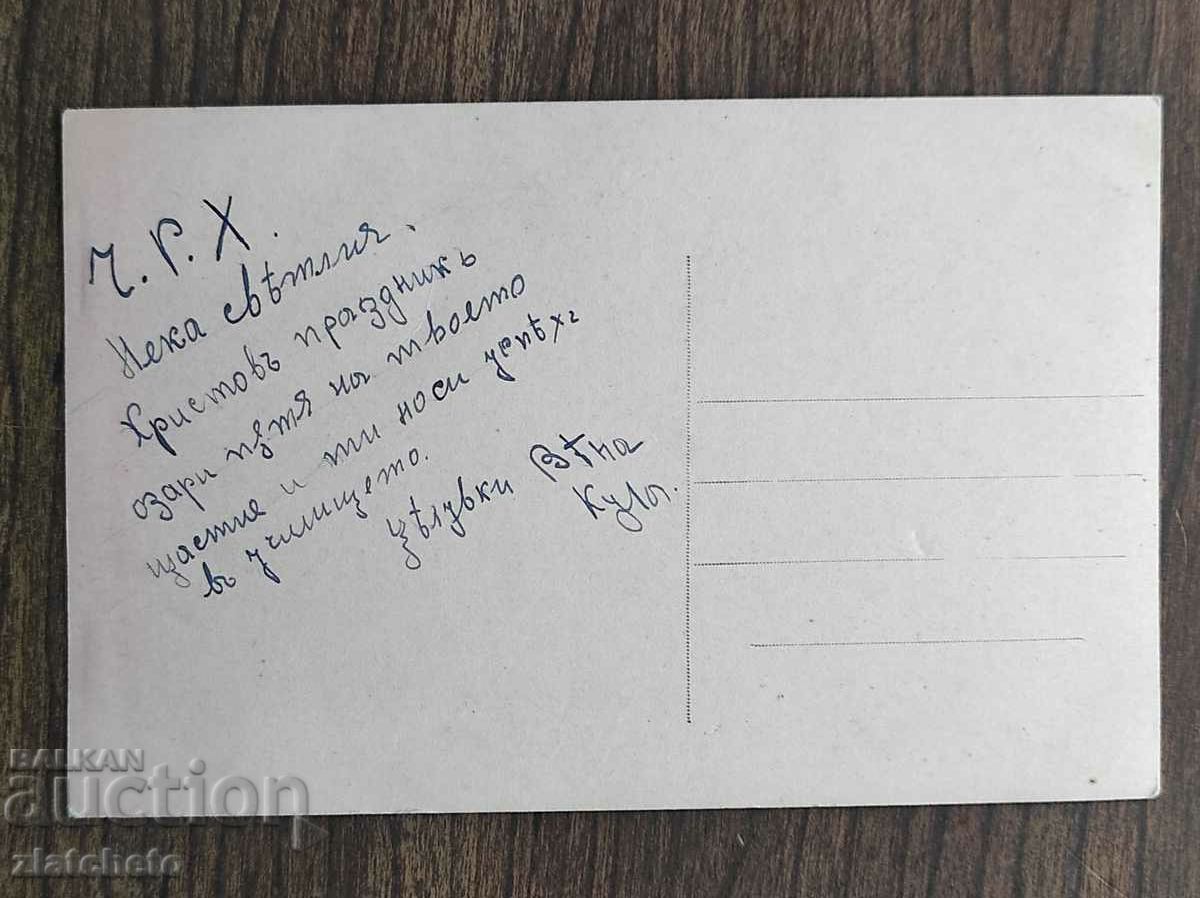 Ч. Р. Х.
Нека свѣтлия
Христовъ праздникъ
озари пѫтя на твоето
щастие и ти носи успѣхъ
въ училището.
Цѣлувки Вѣна
BALKAN
auction
zlatcheto